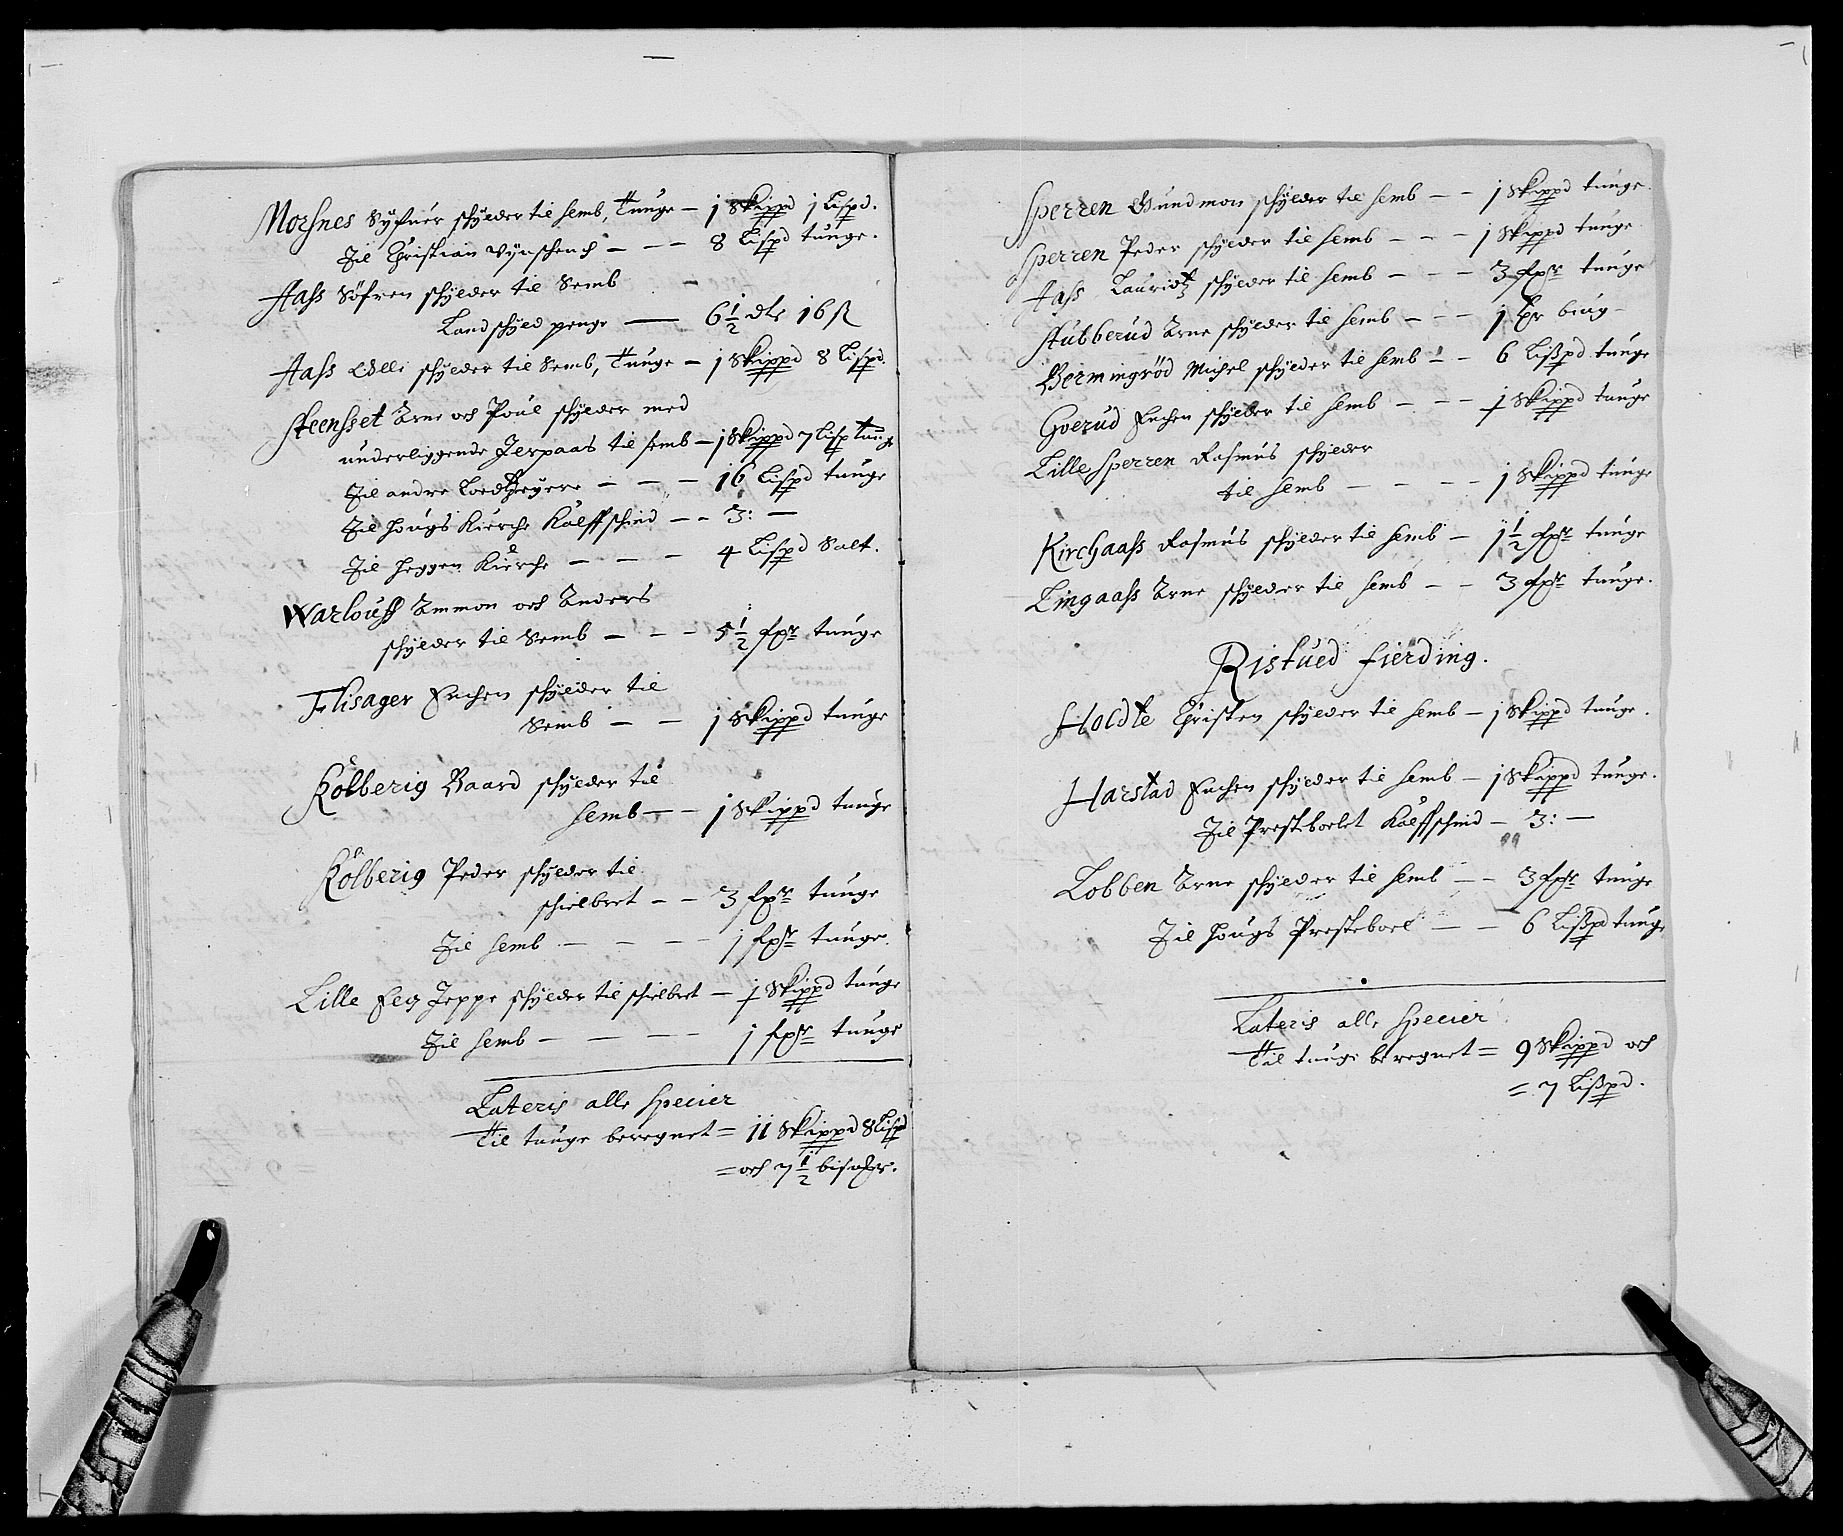 Morsnes Syfuer schylder til Semb, Tunge — 1 Skippd 1 Lispd.
Til Christian Wynschench — — — 8 Lispd tunge.
Aass Söfren schylder til Semb —
Landschyld penge — 6½ dlr 16 ß
Aass Olle schylder til Semb, Tunge — 1 Skippd 8 Lispd.
Steensset Arne och Poul schylder med
underliggende Jerpaas til Semb — 1 Skippd 7 Lisp tunge
Til andre Loedtheyere — — — 16 Lispd tunge
Til Hougs Kierche Kalffschind — — 3: —
Til Heggen Kierche — — — — 4 Lispd Salt.
Warlouff Ammon och Anders
schylder til Semb — — — 5½ fpr tunge
Flisager Enchen schylder til
Semb — — 1 Skippd tunge
Kolberig Baard schylder til
Semb — — 1 Skippd tunge
Kolberig Peder schylder til
schielbret — — 3 fpr tunge
Til Semb — — — — 1 fpr tunge.
Lille Eeg Jeppe schylder til schielbret — 1 Skippd tunge
Til Semb — — — — 1 fpr tunge
Lateris alle Specier
Til tunge beregnet = 11 Skippd 8 Lispd
= och 7½ bismer.
Sperren Gundmon schylder til Semb — — 1 Skippd tunge.
Sperren Peder schylder til Semb — — — 1 Skippd tunge
Aass Lauridtz schylder til Semb — — — 3 fpr tunge
Stubberud Arne schylder til Semb — — — 1 biug —
Germingröd Michel schylder til Semb — — 6 Lißpd tunge
Goerud Enchen schylder til Semb — — — 1 Skippd tunge
Lille Sperren Rasmus schylder
til Semb — — — — 1 Skippd tunge
Kirchaass Rasmus schylder til Semb — 1½ fpr tunge
Lingaass Arne schylder til Semb — — 3 fpr tunge.
Ristued fierding.
Holdte Christen schylder til Semb — 1 Skippd tunge.
Harstad Enchen schylder til Semb — 1 Skippd tunge.
Til Presteboelet Kalffschind — 3: —
Lobben Arne schylder til Semb — — 3 fpr tunge
Til Hougs Presteboel — — 6 Lißpd tunge
Lateris alle Specier
Til tunge beregnet = 9 Skippd och
= 7 Lißpd.